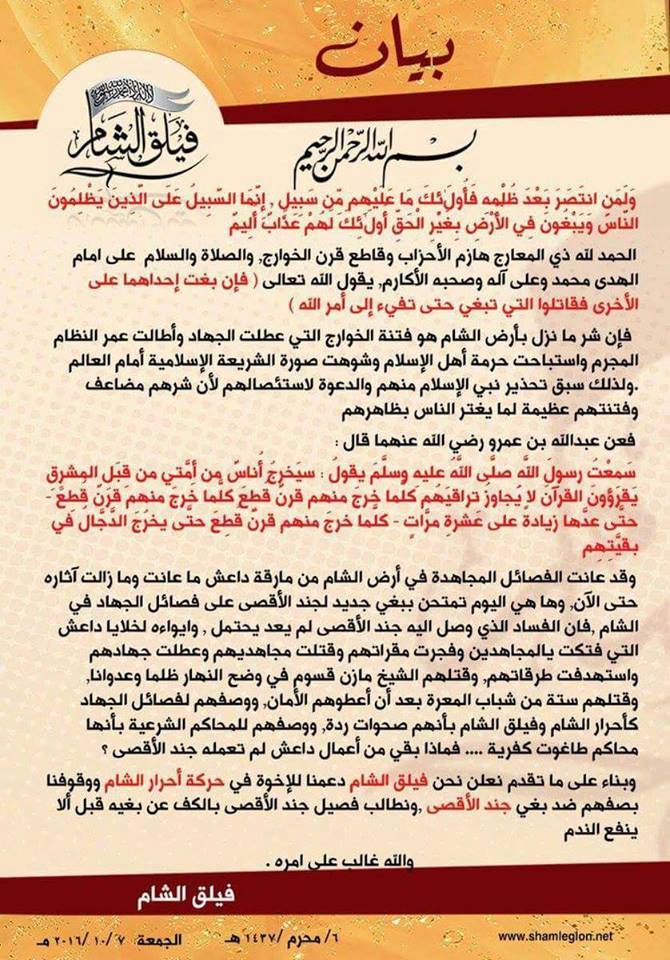 بيان
فيلق الشام
بسم الله الرحمن الرحيم
وَلَمَنِ انتَصَرَ بَعْدَ ظُلْمِهِ فَأُولَٰئِكَ مَا عَلَيْهِم مِّن سَبِيلٍ , إِنَّمَا السَّبِيلُ عَلَى الَّذِينَ يَظْلِمُونَ
النَّاسَ وَيَبْغُونَ فِي الأَرْضِ بِغَيْرِ الْحَقِّ أُولَٰئِكَ لَهُمْ عَذَابٌ أَلِيمٌ
الحمد لله ذي المعارج هازم الأحزاب وقاطع قرن الخوارج, والصلاة والسلام على امام
الهدى محمد وعلى آله وصحبه الأكارم, يقول الله تعالى ( فإن بغت إحداهما على
الأخرى فقاتلوا التي تبغي حتى تفيء إلى أمر الله )
فإن شر ما نزل بأرض الشام هو فتنة الخوارج التي عطلت الجهاد وأطالت عمر النظام
المجرم واستباحت حرمة أهل الإسلام وشوهت صورة الشريعة الإسلامية أمام العالم
.ولذلك سبق تحذير نبي الإسلام منهم والدعوة لاستئصالهم لأن شرهم مضاعف
وفتنتهم عظيمة لما يغتر الناس بظاهرهم
فعن عبدالله بن عمرو رضي الله عنهما قال :
سمعْتُ رسولَ اللَّه صلَّى اللَّهُ عليه وسلَّمَ يقولُ : سيَخرجُ أُناسٌ مِن أمَّتي من قبَلِ المشرِقِ
يَقرؤونَ القرآنَ لا يُجاوزُ تراقيَهُم كلَّما خرجَ منهم قرنٌ قطعَ كلَّما خرجَ منهم قرَنٌ قطعَ -
حتَّى عدَّها زيادةً على عَشرةِ مرَّاتٍ - كلَّما خرجَ منهم قرنٌ قطِعَ حتَّى يخرُجَ الدَّجَّالُ في
بقيَّتِهِم
وقد عانت الفصائل المجاهدة في أرض الشام من مارقة داعش ما عانت وما زالت آثاره
حتى الآن, وها هي اليوم تمتحن ببغي جديد لجند الأقصى على فصائل الجهاد في
الشام ,فان الفساد الذي وصل اليه جند الأقصى لم يعد يحتمل , وايواءه لخلايا داعش
التي فتكت بالمجاهدين وفجرت مقراتهم وقتلت مجاهديهم وعطلت جهادهم
واستهدفت طرقاتهم, وقتلهم الشيخ مازن قسوم في وضح النهار ظلما وعدوانا,
وقتلهم ستة من شباب المعرة بعد أن أعطوهم الأمان, ووصفهم لفصائل الجهاد
كأحرار الشام وفيلق الشام بأنهم صحوات ردة, ووصفهم للمحاكم الشرعية بأنها
محاكم طاغوت كفرية .... فماذا بقي من أعمال داعش لم تعمله جند الأقصى ؟
وبناء على ما تقدم نعلن نحن فيلق الشام دعمنا للإخوة في حركة أحرار الشام ووقوفنا
بصفهم ضد بغي جند الأقصى ,ونطالب فصيل جند الأقصى بالكف عن بغيه قبل ألا
ينفع الندم
والله غالب على امره .
فيلق الشام
٦/ محرم /١٤٣٧ هـ الجمعة ٧ /١٠ /٢٠١٦ مـ
www.shamlegion.net